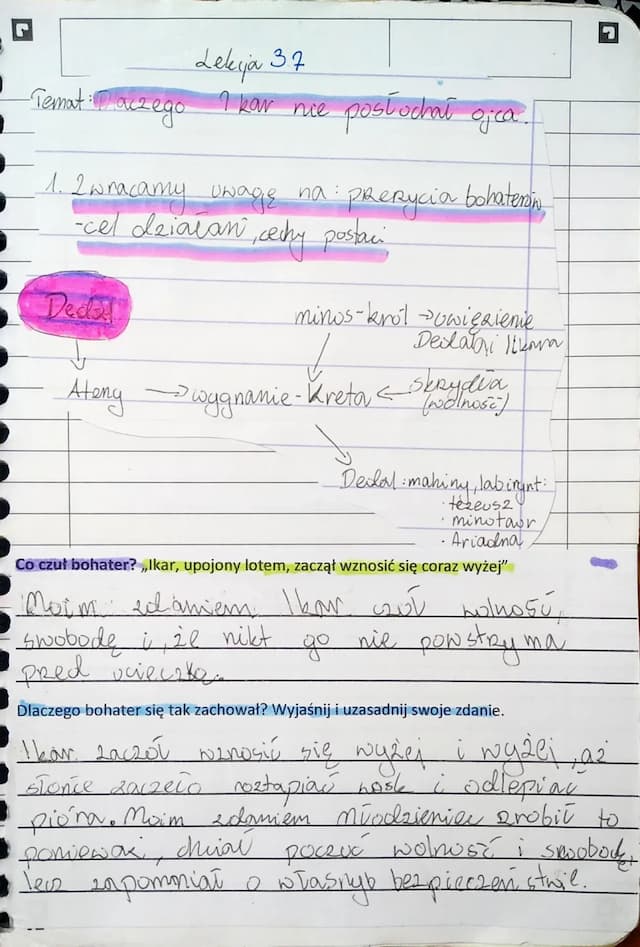 Lekcja 37
Temat: Dlaczego Ikar nie posłochał ojca.
1. Zwracamy uwagę na: przerycia bohaterów
-cel działań, cechy postaci
Dedal
minos-król →uwięzienie
Dedala i Ikara
Ateny → wygnanie - Kreta ← skrydła
(wolność)
Dedal: mahiny, labirynt:
· tezeusz
· minotaur
· Ariadna
Co czuł bohater? „Ikar, upojony lotem, zaczął wznosić się coraz wyżej”
Moim zdaniem Ikar czół wolność,
swobodę i, że nikt go nie powstrzyma
przed ucieczką.
Dlaczego bohater się tak zachował? Wyjaśnij i uzasadnij swoje zdanie.
Ikar zaczół wznosić się wyżej i wyżej, aż
słońce zaczeło roztapiać wosk i odlepiać
pióra. Moim zdaniem młodzieniec zrobił to
poniewaz, chciał poczuć wolność i swobodę,
lecz zapomniał o własnyb bezpieczeństwie.